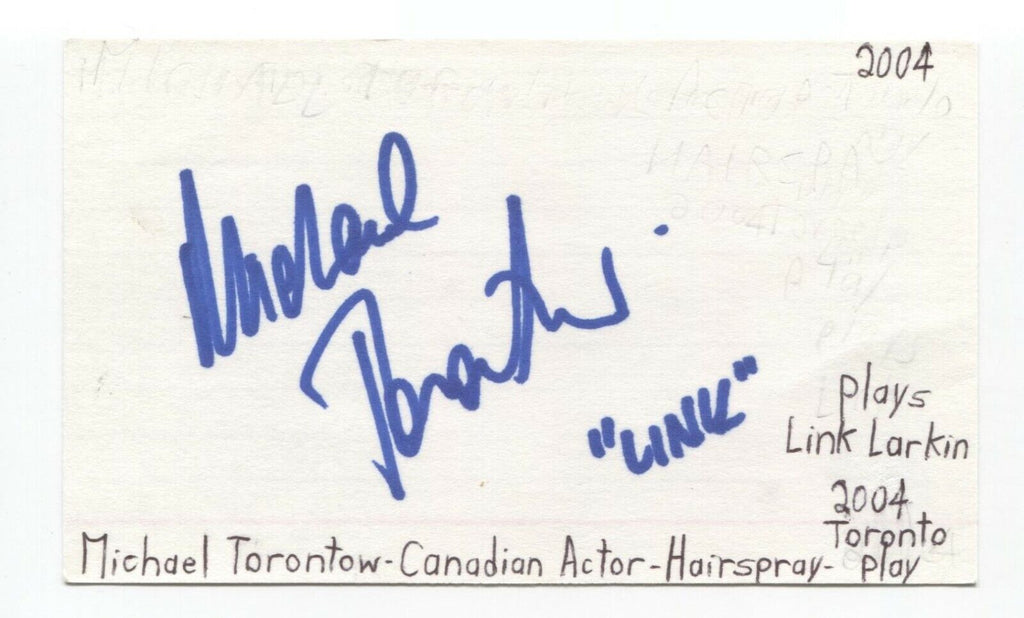 2004
Michael
Torontow
"LINK"
plays
Link Larkin
2004
Toronto
Michael Torontow-Canadian Actor-Hairspray-play
HAIRSPRAY